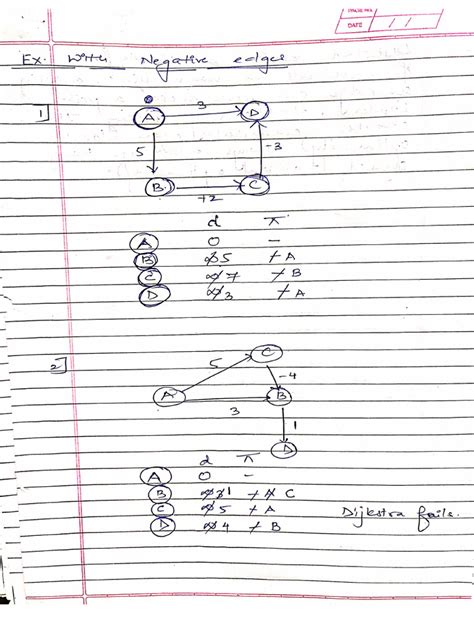 PAGE No.
DATE / /
Ex. With Negative edges
1]
A 3 D
5 -3
B +2 C
d π
A 0 -
B ∞ 5 / A
C ∞ 7 / B
D ∞ 3 / A
2]
C
5 -4
A 3 B
1
D
d π
A 0 -
B ∞ 3 1 / A C
C ∞ 5 / A
D ∞ 4 / B
Dijkstra fails.